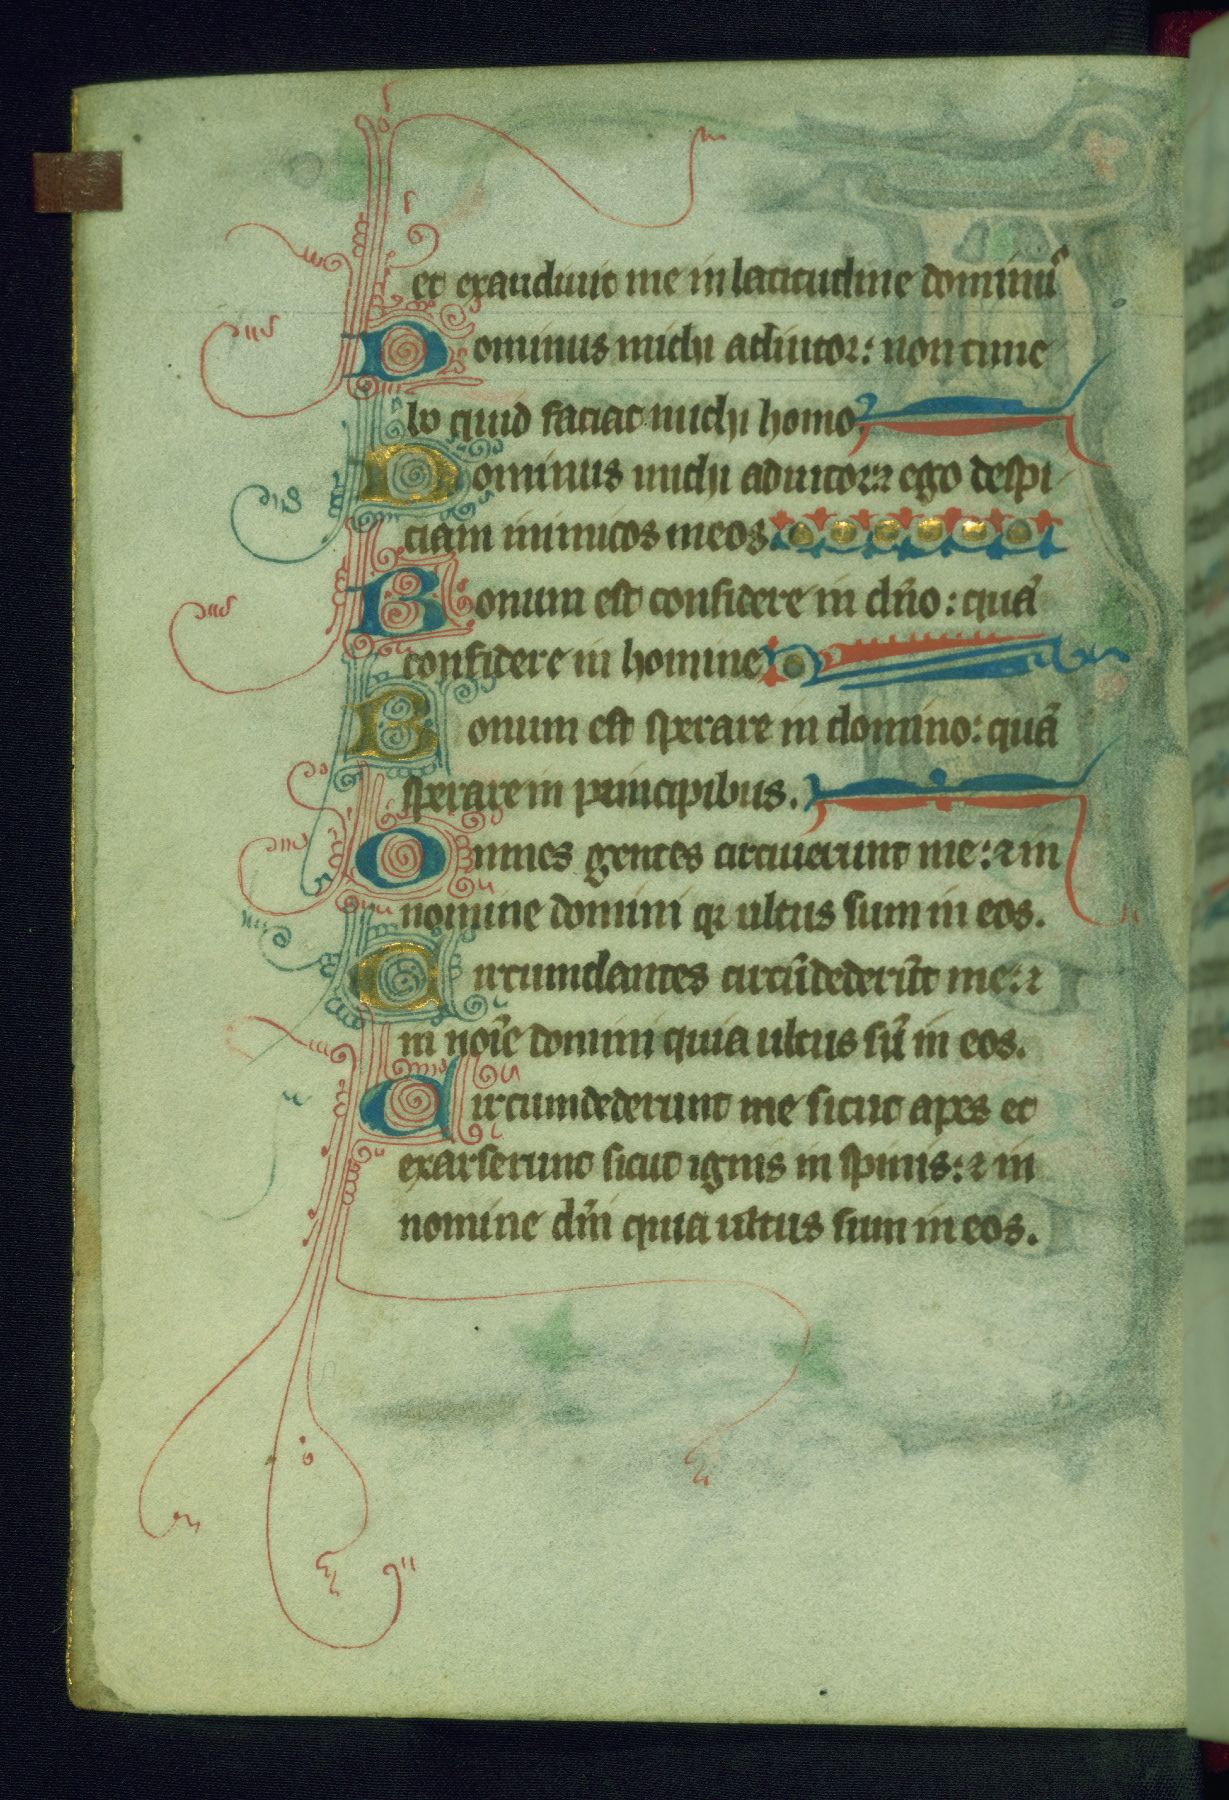 et exaudivit me in latitudine dominus
Dominus michi adiutor: non time
bo quid faciat michi homo.
Dominus michi adiutor: ⁊ ego despi
ciam inimicos meos.
Bonum est confidere in dño: quā
confidere in homine.
Bonum est sperare in domino: quā
sperare in principibus.
Omnes gentes circuierunt me: ⁊ in
nomine domini qꝛ ultus sum in eos.
Circumdantes circūdederūt me: ⁊
in noīe domini quia ultus sū in eos.
Circumdederunt me sicut apes et
exarserunt sicut ignis in spinis: ⁊ in
nomine dñi quia ultus sum in eos.